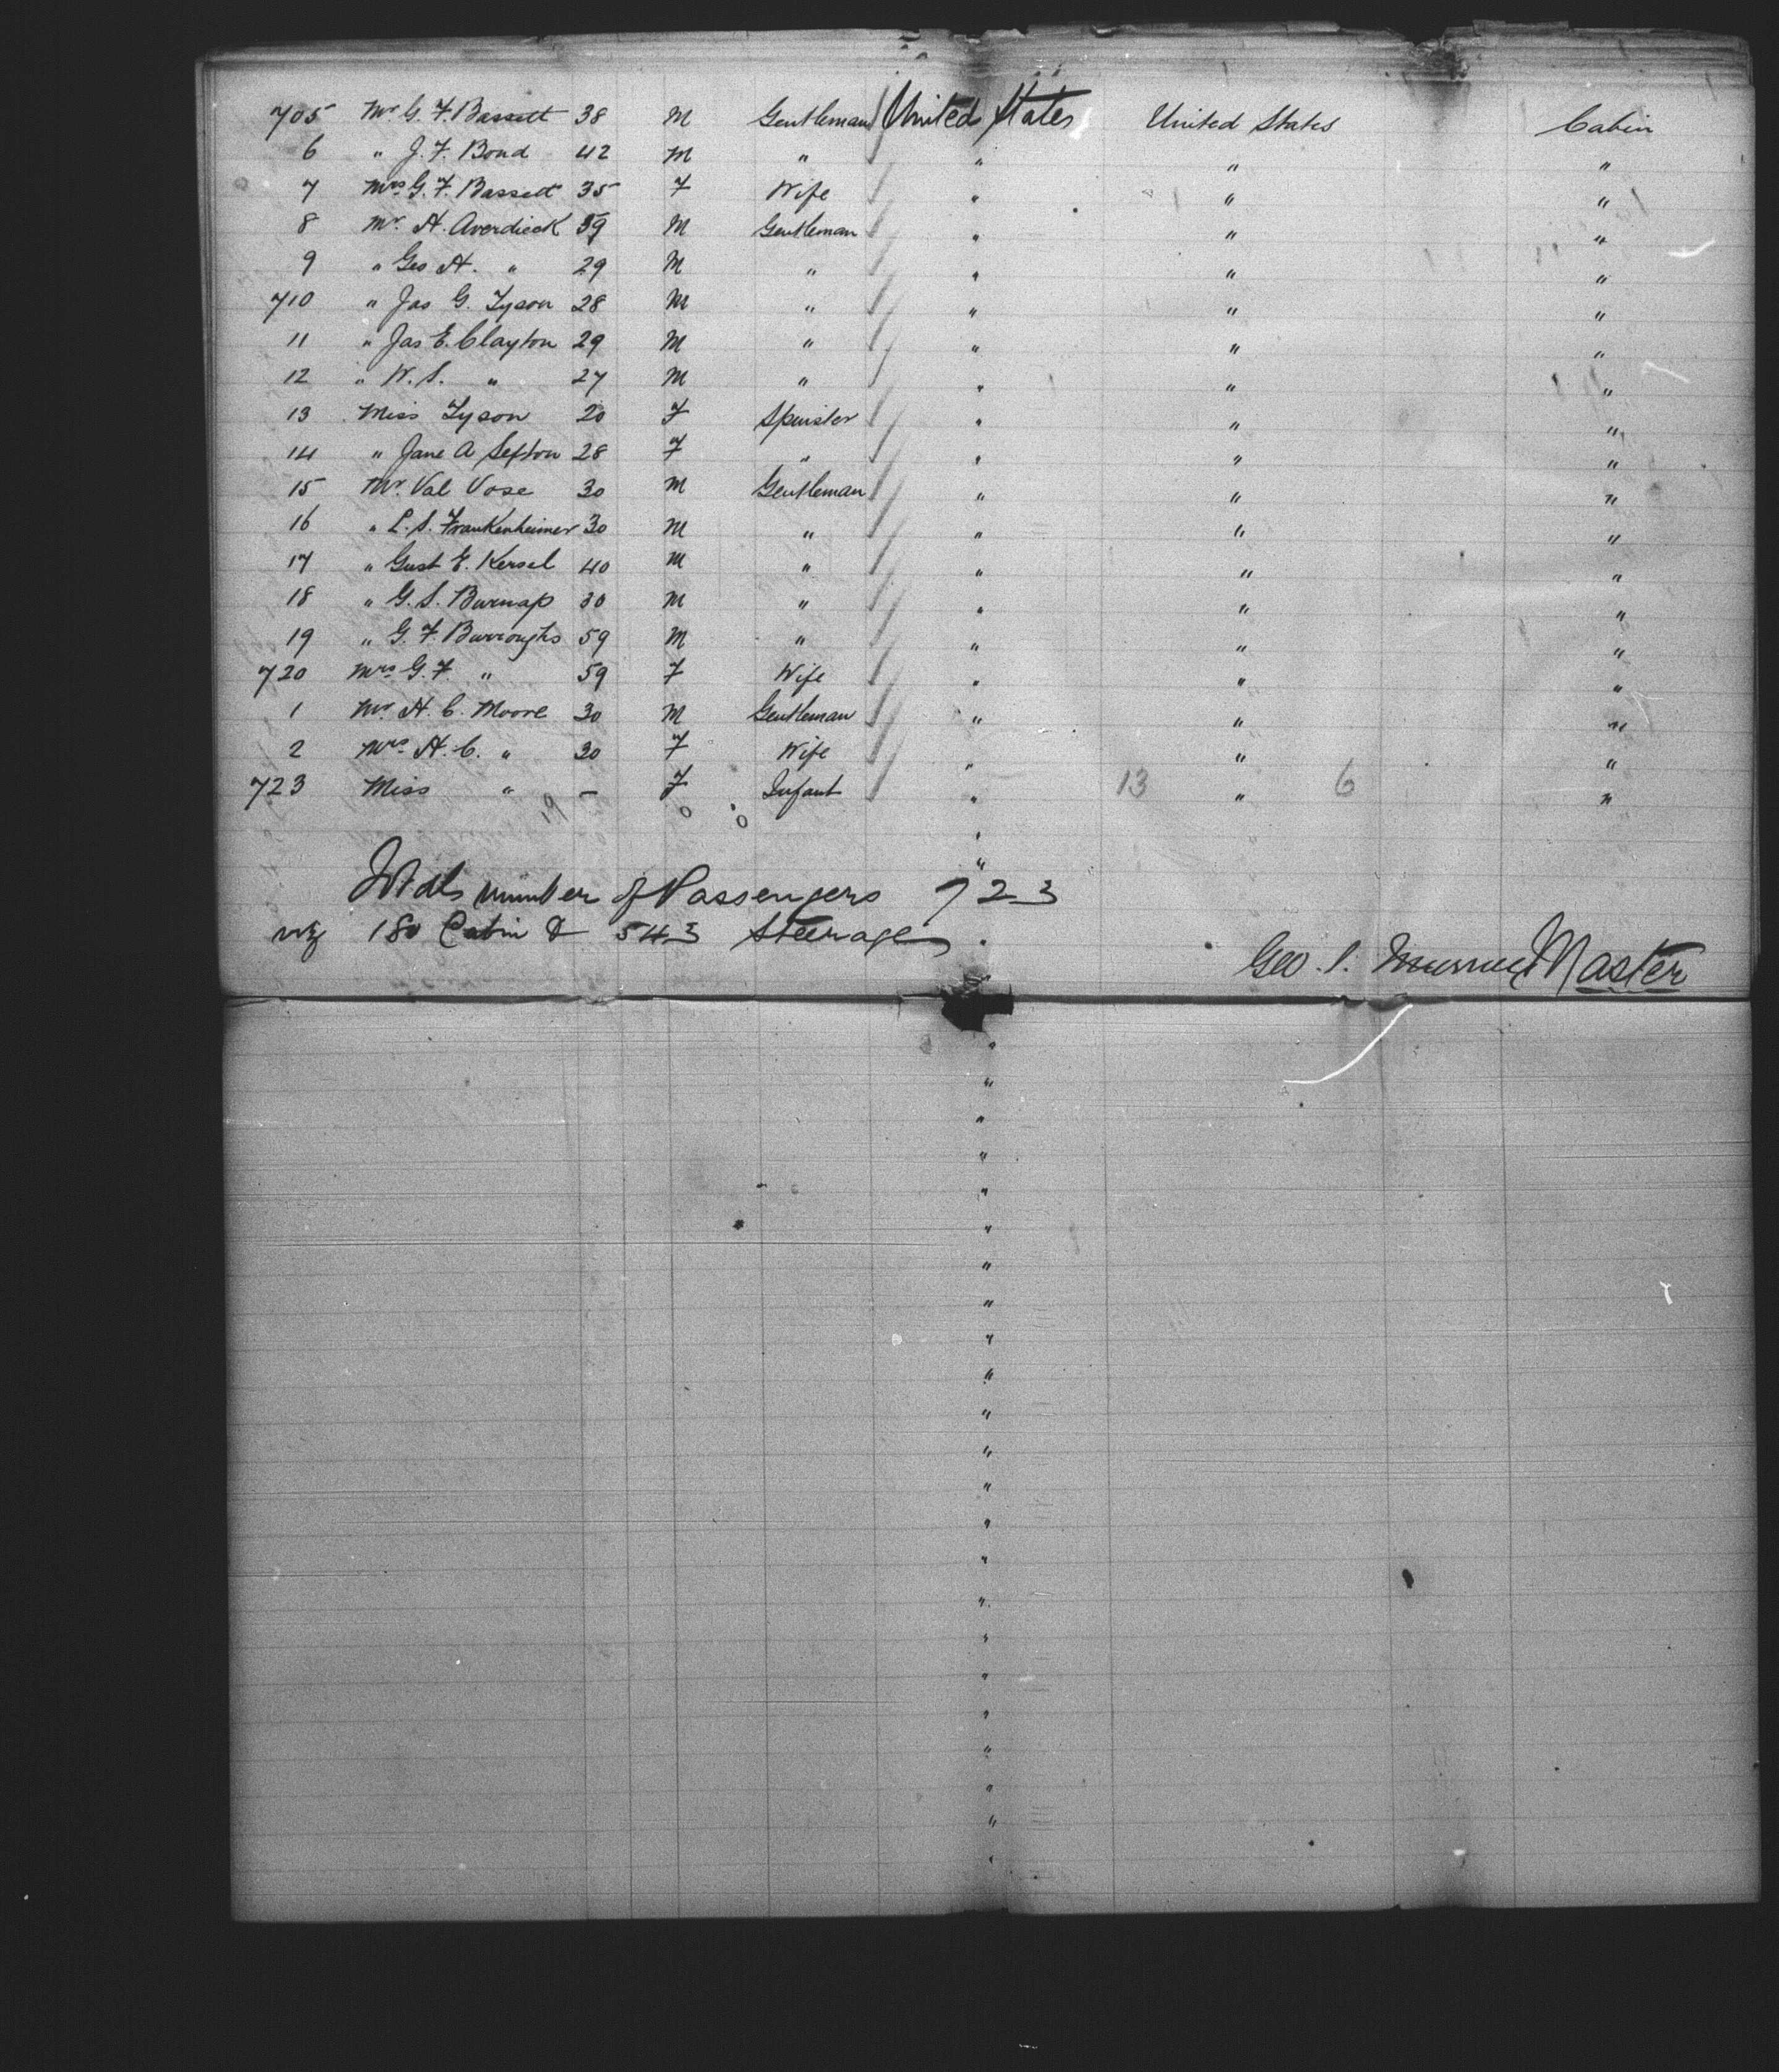 705 Mr G. F. Bassett 38 M Gentleman United States United States Cabin
6 " J. F. Bond 42 M " " " "
7 Mrs G. F. Bassett 35 F Wife " " "
8 Mr. H. Averdieck 39 M Gentleman " " "
9 " Geo H. " 29 M " " " "
710 " Jas G. Tyson 28 M " " " "
11 " Jas E. Clayton 29 M " " " "
12 " W. S. " 27 M " " " "
13 Miss Tyson 20 F Spinster " " "
14 " Jane A Sefton 28 F " " " "
15 Mr. Val Vose 30 M Gentleman " " "
16 " L. S. Frankenheimer 30 M " " " "
17 " Gust E. Kersel 40 M " " " "
18 " G. S. Burnap 30 M " " " "
19 " G. F. Burroughs 59 M " " " "
720 Mrs G. F. " 59 F Wife " " "
1 Mr H. C. Moore 30 M Gentleman " " "
2 Mrs H. C. " 30 F Wife " " "
723 Miss " – F Infant " 13 " 6 "
19
Total number of Passengers 723
viz 180 Cabin & 543 Steerage
Geo. S. Master